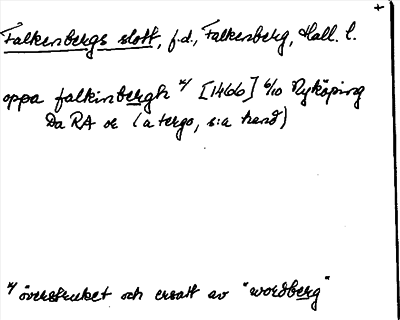 +
Falkenbergs slott, f.d., Falkenberg, Hall. l.
oppa falkinbergh */ [1466] 6/10 Nyköping
Da RA or (a tergo, s:a hand)
*/ överstruket och ersatt av "wordberg"